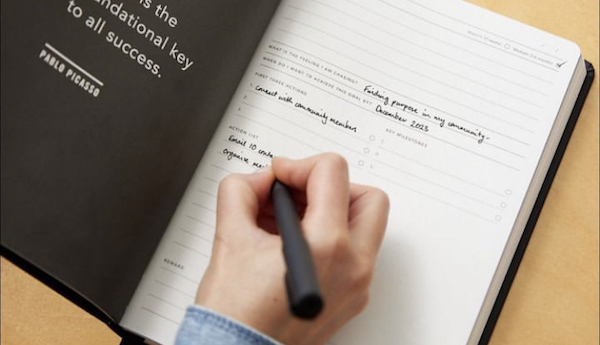 is the
foundational key
to all success.
PABLO PICASSO
WHAT IS THE FEELING I AM CHASING? Finding purpose in my community
WHEN DO I WANT TO ACHIEVE THIS GOAL BY? December 2023
FIRST THREE ACTIONS
connect with community members
KEY MILESTONES
ACTION LIST
Email 10
organise
REWARD